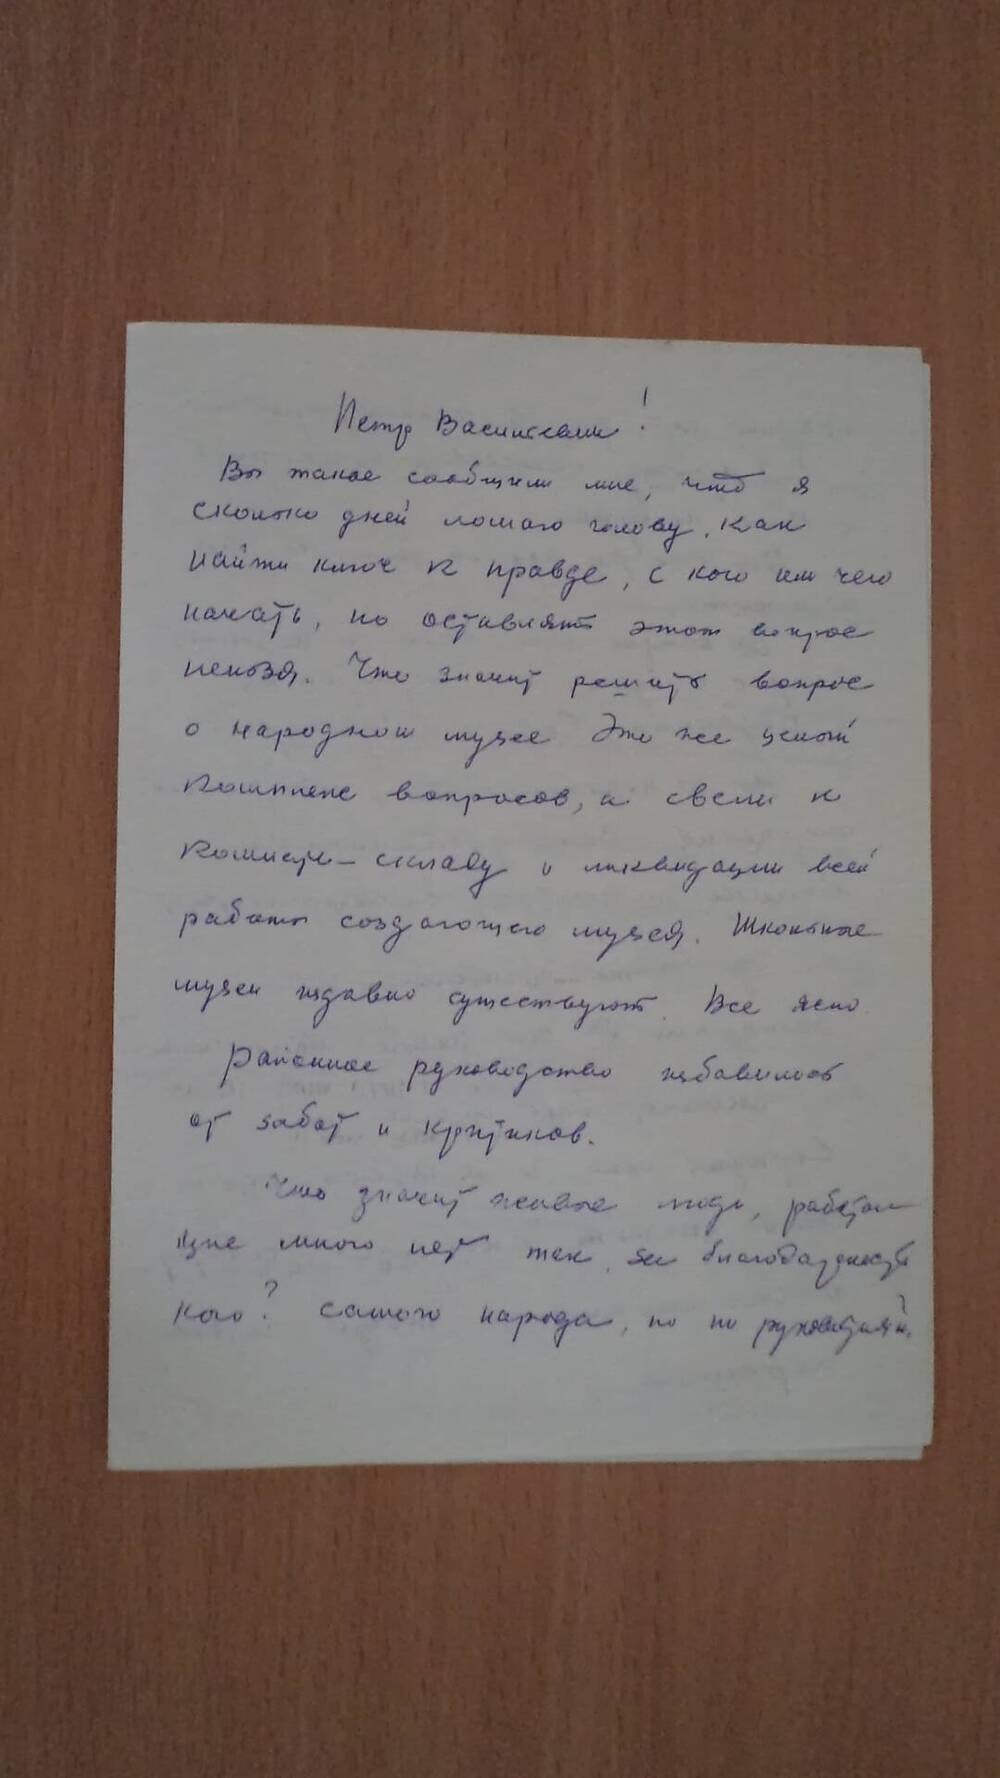 Петр Васильевич!
Вы такое сообщили мне, что я
сколько дней ломаю голову, как
найти ключ к правде, с кого или чего
начать, но оставлять этот вопрос
нельзя. Что значит решить вопрос
о народном музее Это же целый
комплекс вопросов, а свели к
комнате-складу и ликвидации всей
работы создающего музея. Школьные
музеи издавно существуют. Все ясно
Районное руководство избавилось
от забот и критиков.
Что значит живые люди, работаю
щие много лет так, за благодарность
кого? самого народа, но не руководителей.